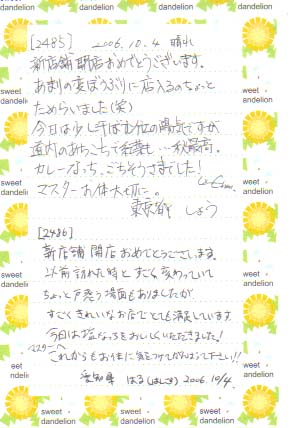 [2485] 2006.10.4 晴れ
新店舗開店おめでとうございます。
あまりの変ぼうぶりに店入るのちょっと
ためらいました(笑)
今日は少し汗ばむ位の陽気ですが
道内のあちこちで紅葉も…秋最高。
カレーなっち、ごちそうさまでした!
マスターお体大切に。
東京都 しょう
[2486]
新店舗 開店 おめでとうございます。
以前訪れた時とすごく変わっていて
ちょっと戸惑う場面もありましたが
すごくきれいなお店でとても満足しています。
今日は なっちをおいしくいただきました!
マスターへ
これからもお体に気をつけてがんばって下さい!!
愛知県 はる 2006.10/4
sweet dandelion
sweet dandelion
sweet dandelion
sweet dandelion
sweet dandelion